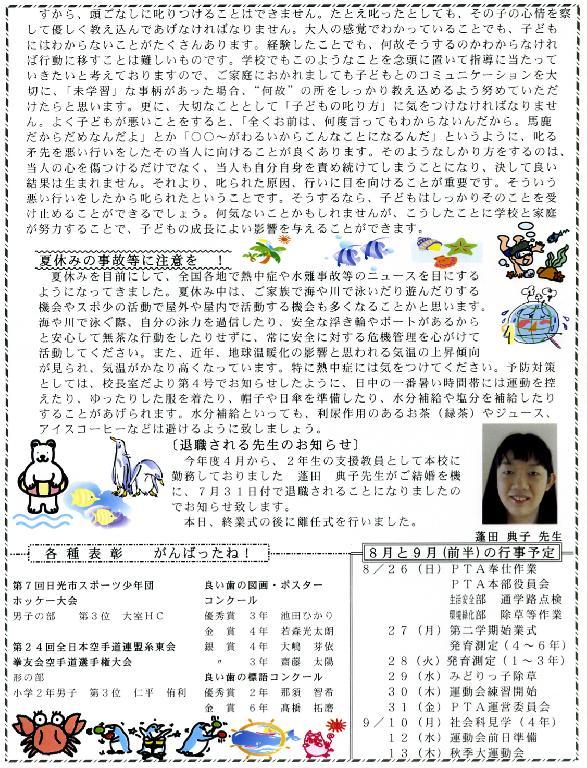 すから、頭ごなしに叱りつけることはできません。たとえ叱ったとしても、その子の心情を察
して優しく教え込んであげなければなりません。大人の感覚でわかっていることでも、子ども
にはわからないことがたくさんあります。経験したことでも、何故そうするのかわからなけれ
ば行動に移すことは難しいものです。学校でもこのようなことを念頭に置いて指導に当たって
いきたいと考えておりますので、ご家庭におかれましても子どもとのコミュニケーションを大
切に、「未学習」な事柄があった場合、“何故”の所をしっかり教え込めるよう努めていただ
けたらと思います。更に、大切なこととして「子どもの叱り方」に気をつけなければなりませ
ん。よく子どもが悪いことをすると、「全くお前は、何度言ってもわからないんだから。馬鹿
だからだめなんだよ」とか「○○~がわるいからこんなことになるんだ」というように、叱る
矛先を悪い行いをしたその当人に向けることが良くあります。そのようなしかり方をするのは、
当人の心を傷つけるだけでなく、当人も自分自身を責め続けてしまうことになり、決して良い
結果は生まれません。それより、叱られた原因、行いに目を向けることが重要です。そういう
悪い行いをしたから叱られたということです。そうするなら、子どもはしっかりそのことを受
け止めることができるでしょう。何気ないことかもしれませんが、こうしたことに学校と家庭
が努力することで、子どもの成長によい影響を与えることができます。
夏休みの事故等に注意を ！
夏休みを目前にして、全国各地で熱中症や水難事故等のニュースを目にする
ようになってきました。夏休み中は、ご家族で海や川で泳いだり遊んだりする
機会やスポ少の活動で屋外や屋内で活動する機会も多くなることかと思います。
海や川で泳ぐ際、自分の泳力を過信したり、安全な浮き輪やボートがあるから
と安心して無茶な行動をしたりせずに、常に安全に対する危機管理を心がけて
活動してください。また、近年、地球温暖化の影響と思われる気温の上昇傾向
が見られ、気温がかなり高くなっています。特に熱中症には気をつけてください。予防対策
としては、校長室だより第４号でお知らせしたように、日中の一番暑い時間帯には運動を控
えたり、ゆったりした服を着たり、帽子や日傘を準備したり、水分補給や塩分を補給したり
することがあげられます。水分補給といっても、利尿作用のあるお茶（緑茶）やジュース、
アイスコーヒーなどは避けるように致しましょう。
〔退職される先生のお知らせ〕
今年度４月から、２年生の支援教員として本校に
勤務しておりました 蓬田 典子先生がご結婚を機
に、７月３１日付で退職されることになりましたの
でお知らせ致します。
本日、終業式の後に離任式を行いました。
蓬田 典子 先生
各種表彰 がんばったね！
第７回日光市スポーツ少年団
ホッケー大会
男子の部 第３位 大室ＨＣ
第２４回全日本空手道連盟糸東会
拳友会空手道選手権大会
形の部
小学２年男子 第３位 仁平 侑利
良い歯の図画・ポスター
コンクール
優秀賞 ３年 池田ひかり
金 賞 ４年 若森光太朗
銀 賞 ４年 大嶋 芽依
〃 ３年 齋藤 太陽
良い歯の標語コンクール
優秀賞 ２年 那須 智希
金 賞 ６年 髙橋 拓磨
８月と９月(前半)の行事予定
８／２６（日）ＰＴＡ奉仕作業
ＰＴＡ本部役員会
生活安全部 通学路点検
環境緑化部 除草等作業
２７（月）第二学期始業式
発育測定（４～６年）
２８（火）発育測定（１～３年）
２９（水）みどりっ子除草
３０（木）運動会練習開始
３１（金）ＰＴＡ運営委員会
９／１０（月）社会科見学（４年）
１２（水）運動会前日準備
１３（木）秋季大運動会